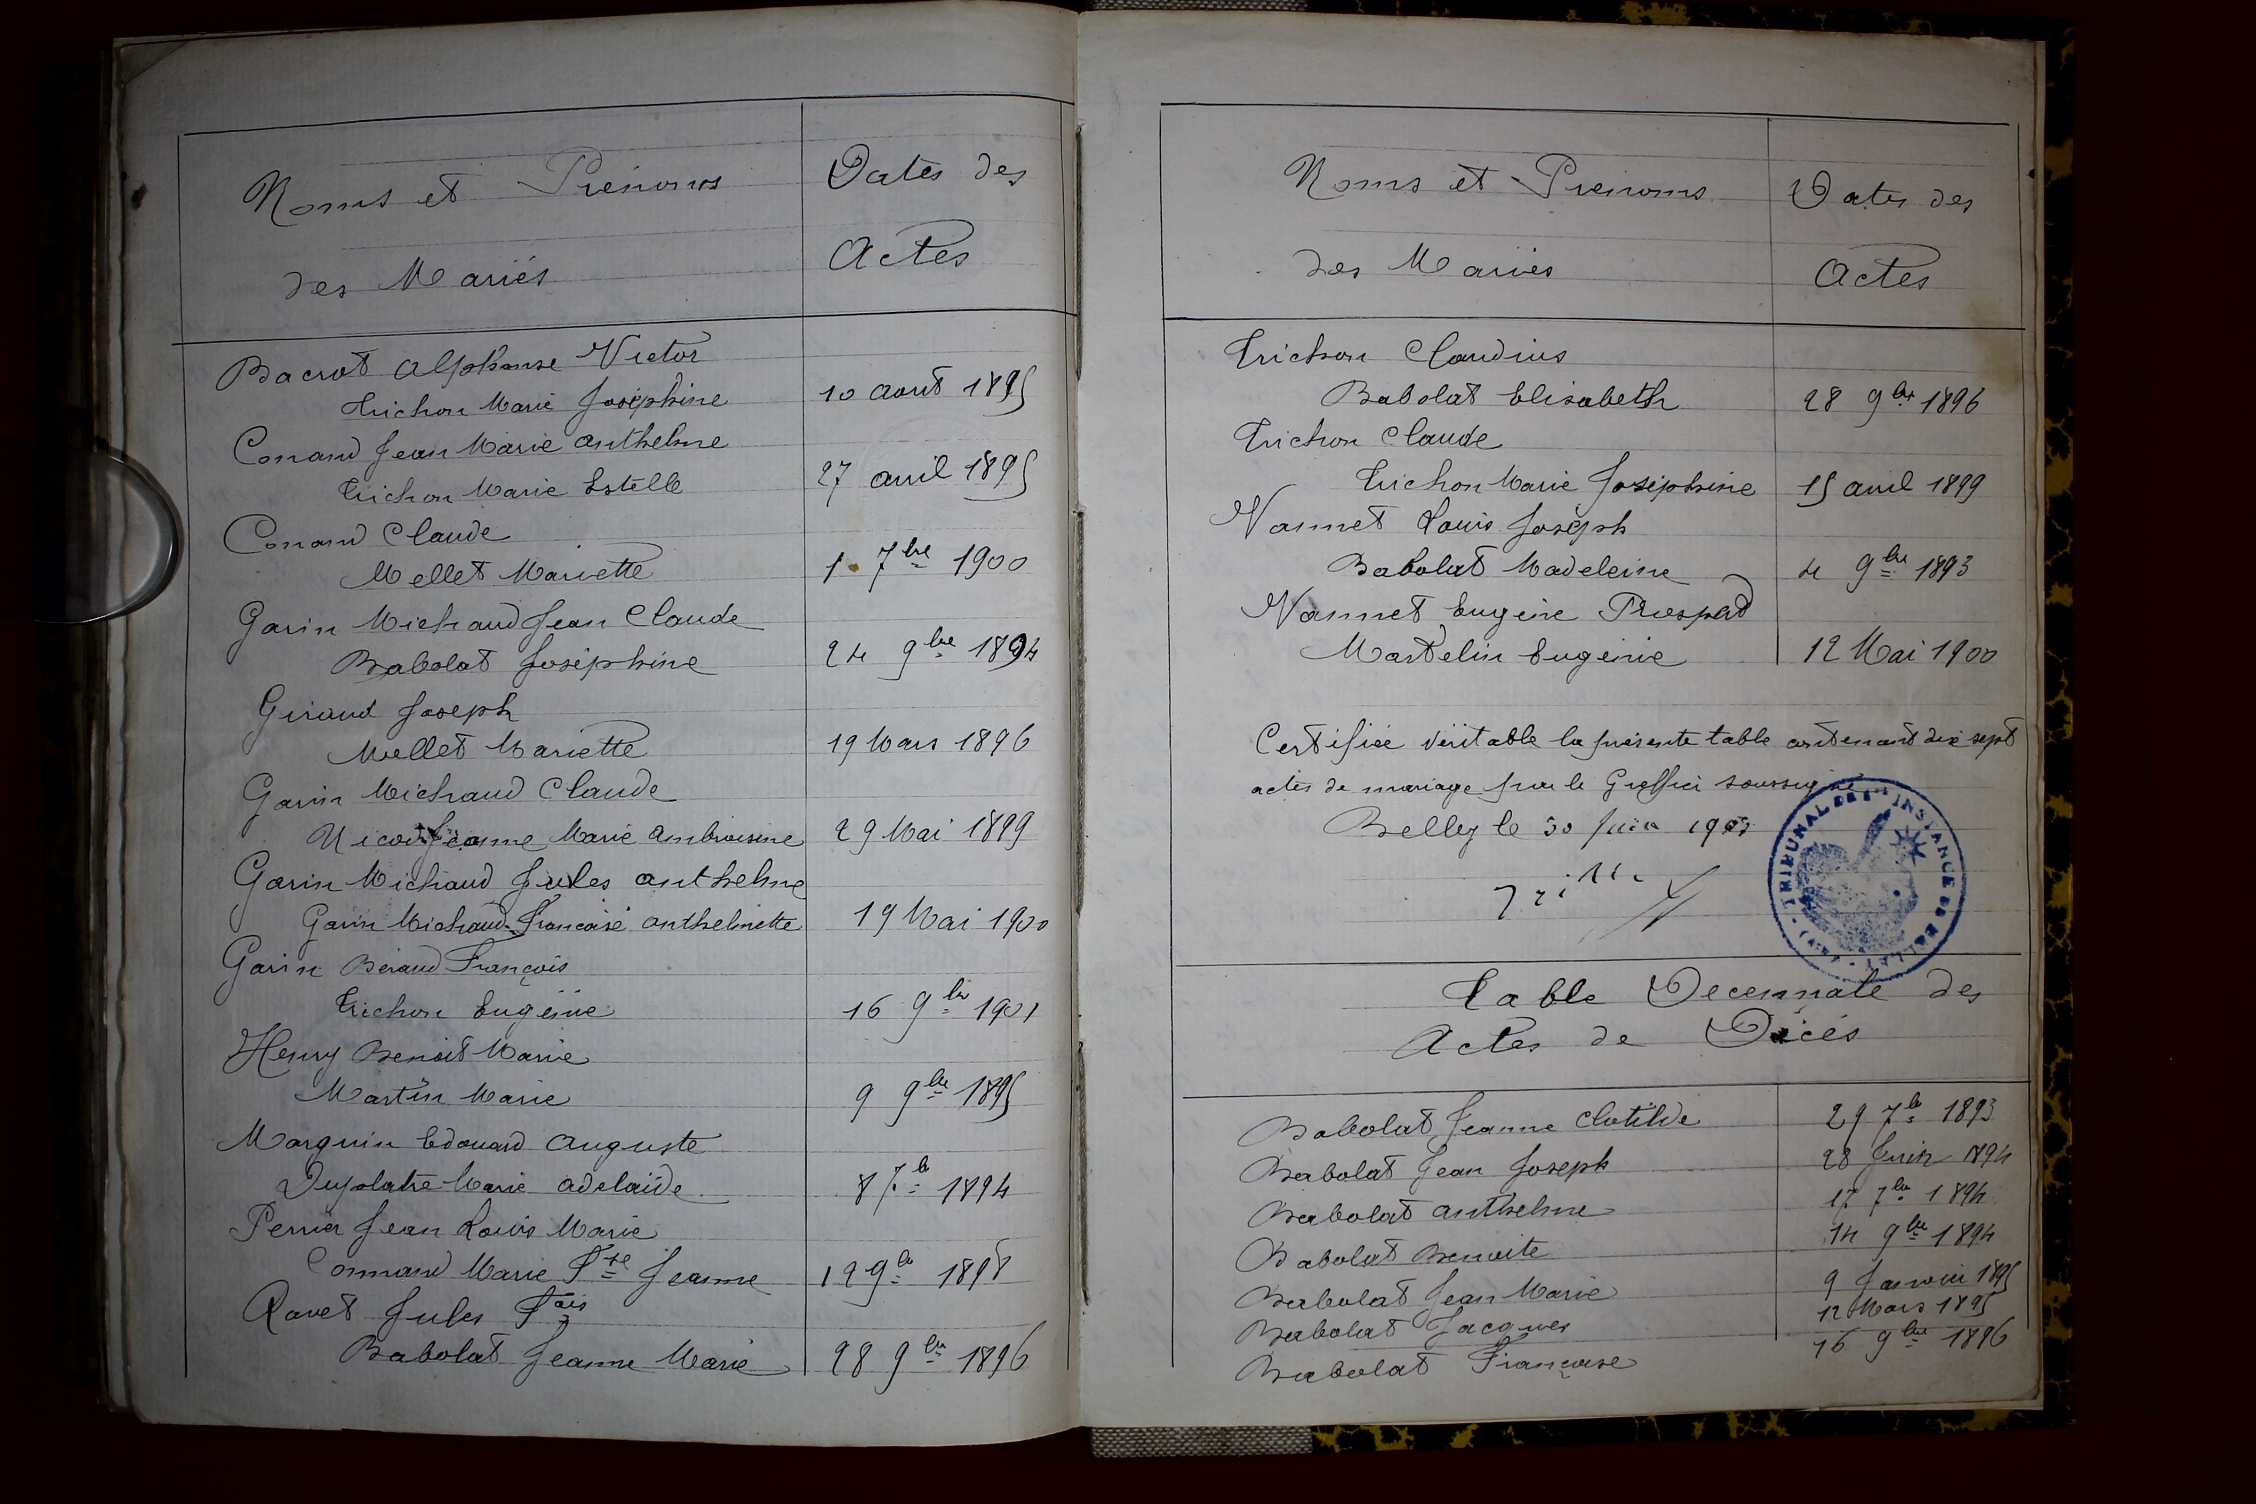 Noms et Prénoms
des Mariés
Dates des
Actes
Bacrot Alphonse Victor
Trichon Marie Joséphine 10 aout 1895
Conand Jean Marie Anthelme
Trichon Marie Estelle 27 avril 1895
Conand Claude
Mellet Mariette 1 7bre 1900
Garin Michaud Jean Claude
Babolat Joséphine 24 9bre 1894
Giraud Joseph
Mellet Mariette 19 Mars 1896
Garin Michaud Claude
Jeanne Marie Ambroisine 29 Mai 1899
Garin Michaud Jules Anthelme
Garin Michaud Françoise Anthelmette 19 Mai 1900
Garin Béraud François
Trichon Eugénie 16 9bre 1901
Henry Benoit Marie
Martin Marie 9 9bre 1895
Marguin Edouard Auguste
Duplatre Marie Adelaïde 8 7b 1894
Perrier Jean Louis Marie
Connand Marie Fse Jeanne 12 9b 1898
Ravet Jules Fais
Babolat Jeanne Marie 28 9bre 1896
Noms et Prénoms
des Mariés
Dates des
Actes
Trichon Claudius
Babolat Elisabeth 28 9bre 1896
Trichon Claude
Trichon Marie Joséphine 15 avril 1899
Vannet Louis Joseph
Babolat Madeleine 4 9bre 1893
Vannet Eugène
Martelin Eugénie 12 Mai 1900
Certifiée véritable la présente table contenant dix sept
actes de mariage par le Greffier soussigné
Belley le 30 Juin
TRIBUNAL DE 1re INSTANCE DE BELLEY
Table Decennale des
Actes de Décés
Babolat Jeanne Clotilde 29 7b 1893
Babolat Jean Joseph 28 Juin 1894
Babolat Anthelme 17 7bre 1894
Babolat Benoite 14 9bre 1894
Babolat Jean Marie 9 Janvier 1895
Babolat Jacques 12 Mars 1895
Babolat Françoise 16 9bre 1896